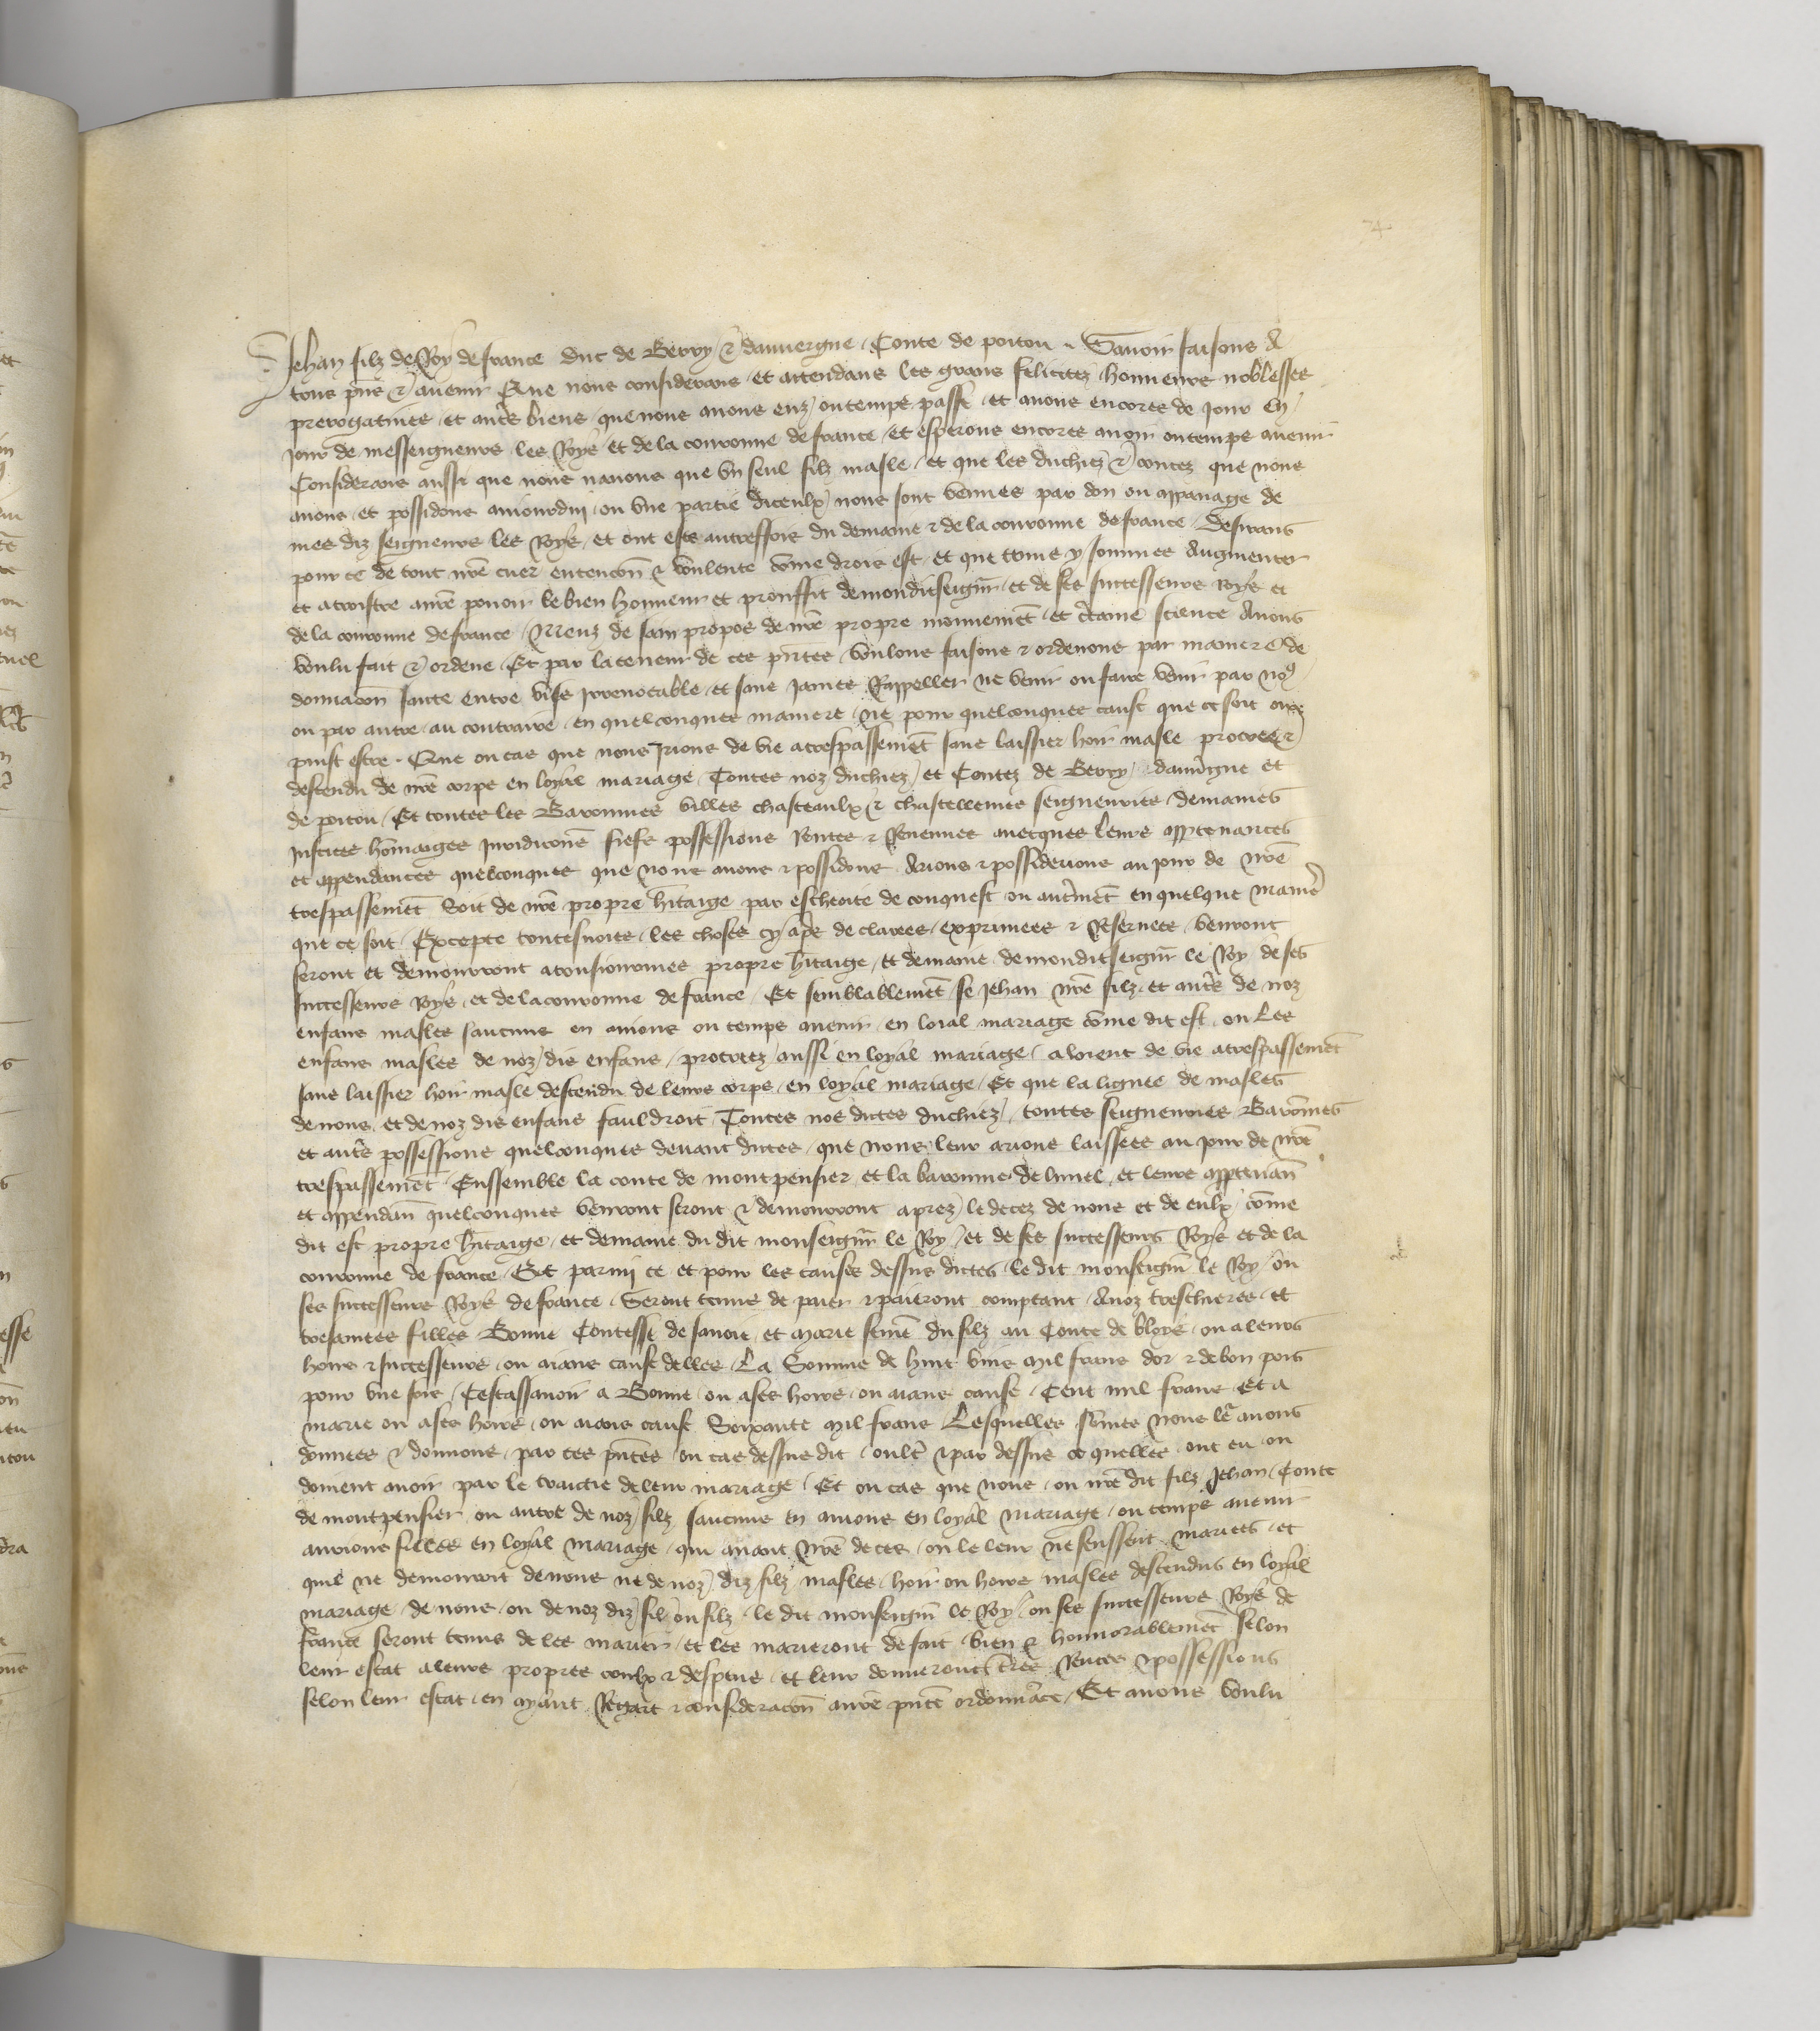 74
Jehan filz de Roy de france Duc de Berry et dauuergne Conte de poitou Sauoir faisons A
tous pñs et auenir Que nous considerans et attendans les grans felicitez honneurs noblesses
prerogatiues et autˢ biens que nous auons euz ou temps passe et auons encores de jour en
jour de messeigneurs les Roys et de la couronne de france et esperons encores auoir ou temps auenir
Considerans aussi que nous nauons que vn seul filz masle et que les duchiez et contez que nous
auons et possidons auiourdui ou vne partie diceulx nous sont venues par don ou appanage de
mes diz seigneurs les Roys et ont este autreffois du demaine et de la couronne de france Desirans
pour ce de tout nr̃e cuer entencõn et voulente cõme drois est et que tenus y sommes Augmenter
et acroistre a nr̃e pouoir le bien honneur et prouffit de mondit seigñr et de ses successeurs Roys et
de la couronne de france Meuz de sain propos de nr̃e propre mouuemẽt et certaine science Auons
voulu fait et ordene Et par la teneur de ces pñtes voulons faisons et ordenons par maniere de
donnacõn faicte entre vifs irreuocable et sans james Rappeller ne venir ou faire venir par noꝰ
ou par autre au contraire en quelconques maniere ne pour quelconques cause que ce soit ore
puist estre Que ou cas que nous jrions de vie a trespassemẽt sans laissier hoir masle procree et
descendu de nr̃e corps en loyal mariage Toutes noz duchiez et Contez de Berry dauuˢgne et
de poitou Et toutes les Baronnies villes chasteaulx et chastellenies seigneuries demaines
justices hõmaiges juridicõns fiefs possessions Rentes et Reuenues auecques leurs appˢtenances
et appendances quelconques que nous auons et possidons Arions et possiderions au jour de nr̃e
trespassemẽt Soit de nr̃e propre hˢitaige par escheoite de conquest ou autˢmẽt en quelque maniˢe
que ce soit Excepte toutesuoies les choses cy apˢs declarees exprimees et Reseruees venront
seront et demourront a tousiourmes propre hˢitaige et demaine de mondit seigñr le Roy de ses
successeurs Roys et de la couronne de france Et semblablemẽt se Jehan nr̃e filz et autˢs de noz
enfans masles saucuns en auions ou temps auenir en loial mariage cõme dit est ou Les
enfans masles de noz dis enfans procreez aussi en loyal mariage aloient de vie a trespassemẽt
sans laissier hoir masle descendu de leurs corps en loyal mariage Et que la lignee de masles
de nous et de noz dis enfans fauldroit Toutes nos dictes duchiez toutes seigneuries Barõnies
et autˢs possessions quelconques deuant dictes que nous leur arions laissees au jour de nr̃e
trespassemẽt Enssemble la conte de montpensier et la baronnie de lunel et leurs appˢtenañ
et appendañ quelconques venront seront et demourront aprez le decez de nous et de eulx cõme
dit est propre hˢitaige et demaine du dit monseigñr le Roy et de ses successeurs Roys et de la
couronne de france Et parmi ce et pour les causes dessus dictes le dit monseigñr le Roy ou
ses successeurs Roys de france Seront tenus de paier et paieront comptant A noz treschieres et
tresamees filles Bonne Contesse de sauoie et Marie femẽ du filz au Conte de bloys ou a leurs
hoirs et successeurs ou aians cause delles La Somme de huit vins mil frans dor et de bon pois
pour vne fois Cestassauoir a Bonne ou a ses hoirs ou aians cause Cent mil frans Et a
marie ou a ses hoirs ou aians cause Soixante mil frans Lesquelles sõmes nous leˢ auons
donnees et donnons par ces pñtes ou cas dessus dit oultˢ et par dessus ce quelles ont eu ou
doiuent auoir par le traictie de leur mariage Et ou cas que nous ou nr̃e dit filz Jehan Conte
de montpensier ou autre de noz filz saucuns en auions en loyal mariage ou temps auenir
aurions filles en loyal mariage qui auant nr̃e deces ou le leur ne feussent mariees et
quil ne demourroit de nous ne de noz diz filz masles hoir ou hoirs masles descendus en loyal
mariage de nous ou de noz diz filˢ ou filz le dit monseigñr le Roy ou ses successeurs Roys de
france seront tenus de les marier et les marieront de fait bien et honnorablemẽt selon
leur estat a leurs propres coulx et despens et leur donneront tˢres Rentes et possessions
selon leur estat en ayant Regart et consideracõn a nr̃e pñte ordonnãce Et auons voulu